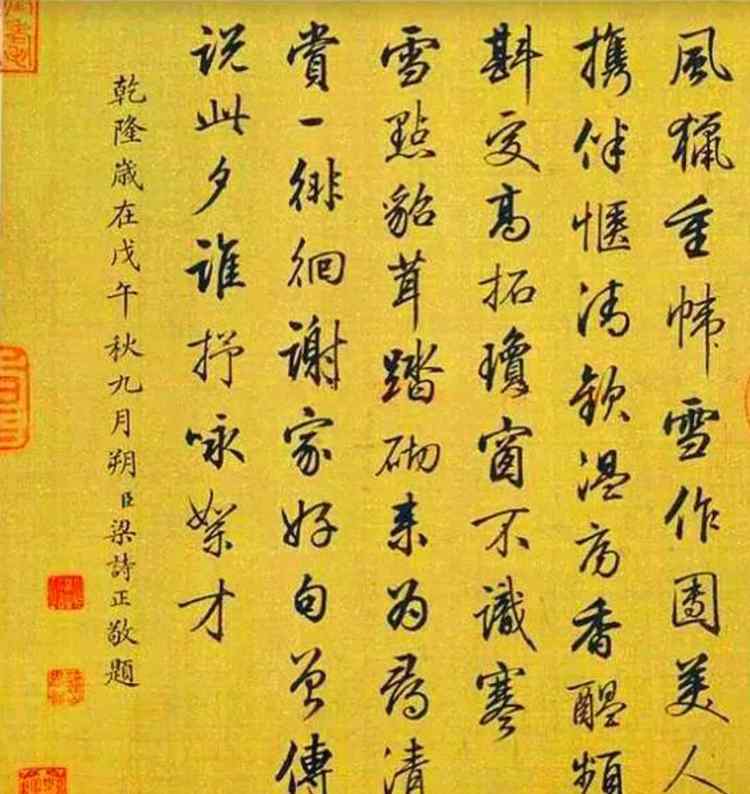 風獵重幃雪作團美人
携伴愜清歡温房香醖頻
斟高拓瓊窗不識寒
雪點貂茸踏砌来為尋清
賞一徘徊謝家好句曾傳
説此夕誰抒咏絮才
乾隆歲在戊午秋九月朔臣梁詩正敬題